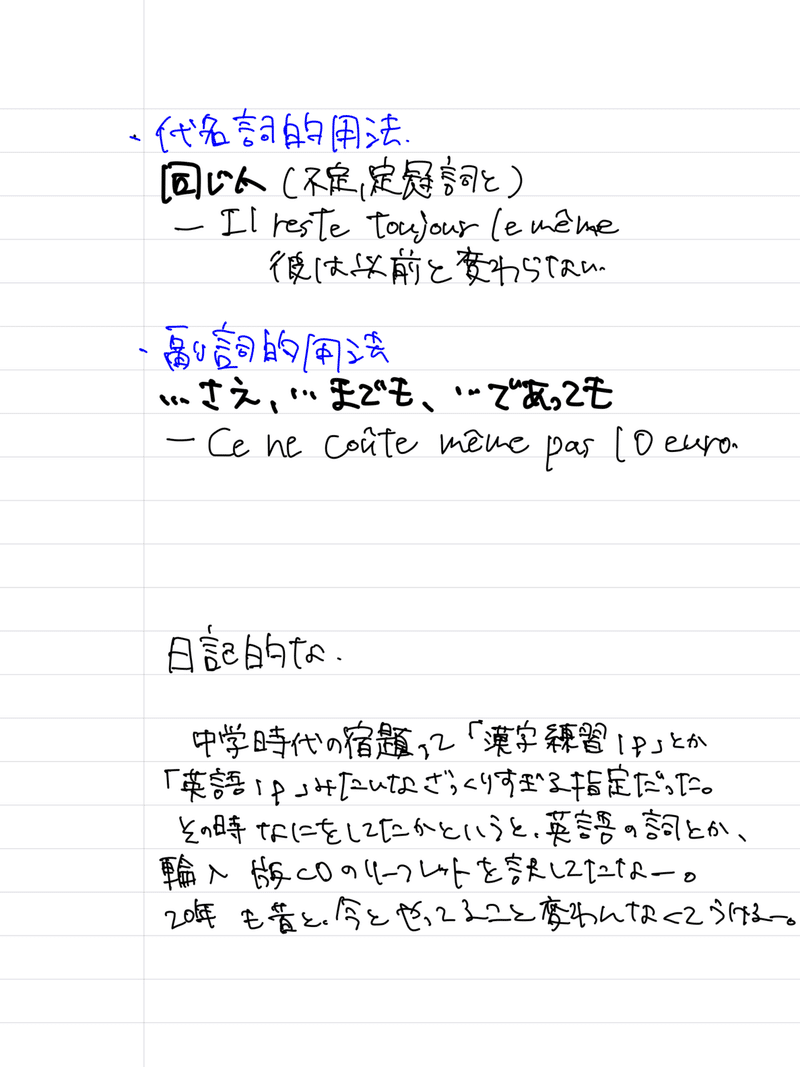 ・代名詞的用法.
同じ人（不定,定冠詞と）
— Il reste toujour le même
彼は以前と変わらない.
・副詞的用法
…さえ、…までも、…であっても
— Ce ne coûte même pas 10 euro.
日記的な.
中学時代の宿題って「漢字練習1p」とか
「英語1p」みたいなざっくりすぎる指定だった。
その時なにをしてたかというと、英語の詞とか、
輸入版CDのリーフレットを訳してたなー。
20年も昔と、今とやってること変わんなくてうけるー。